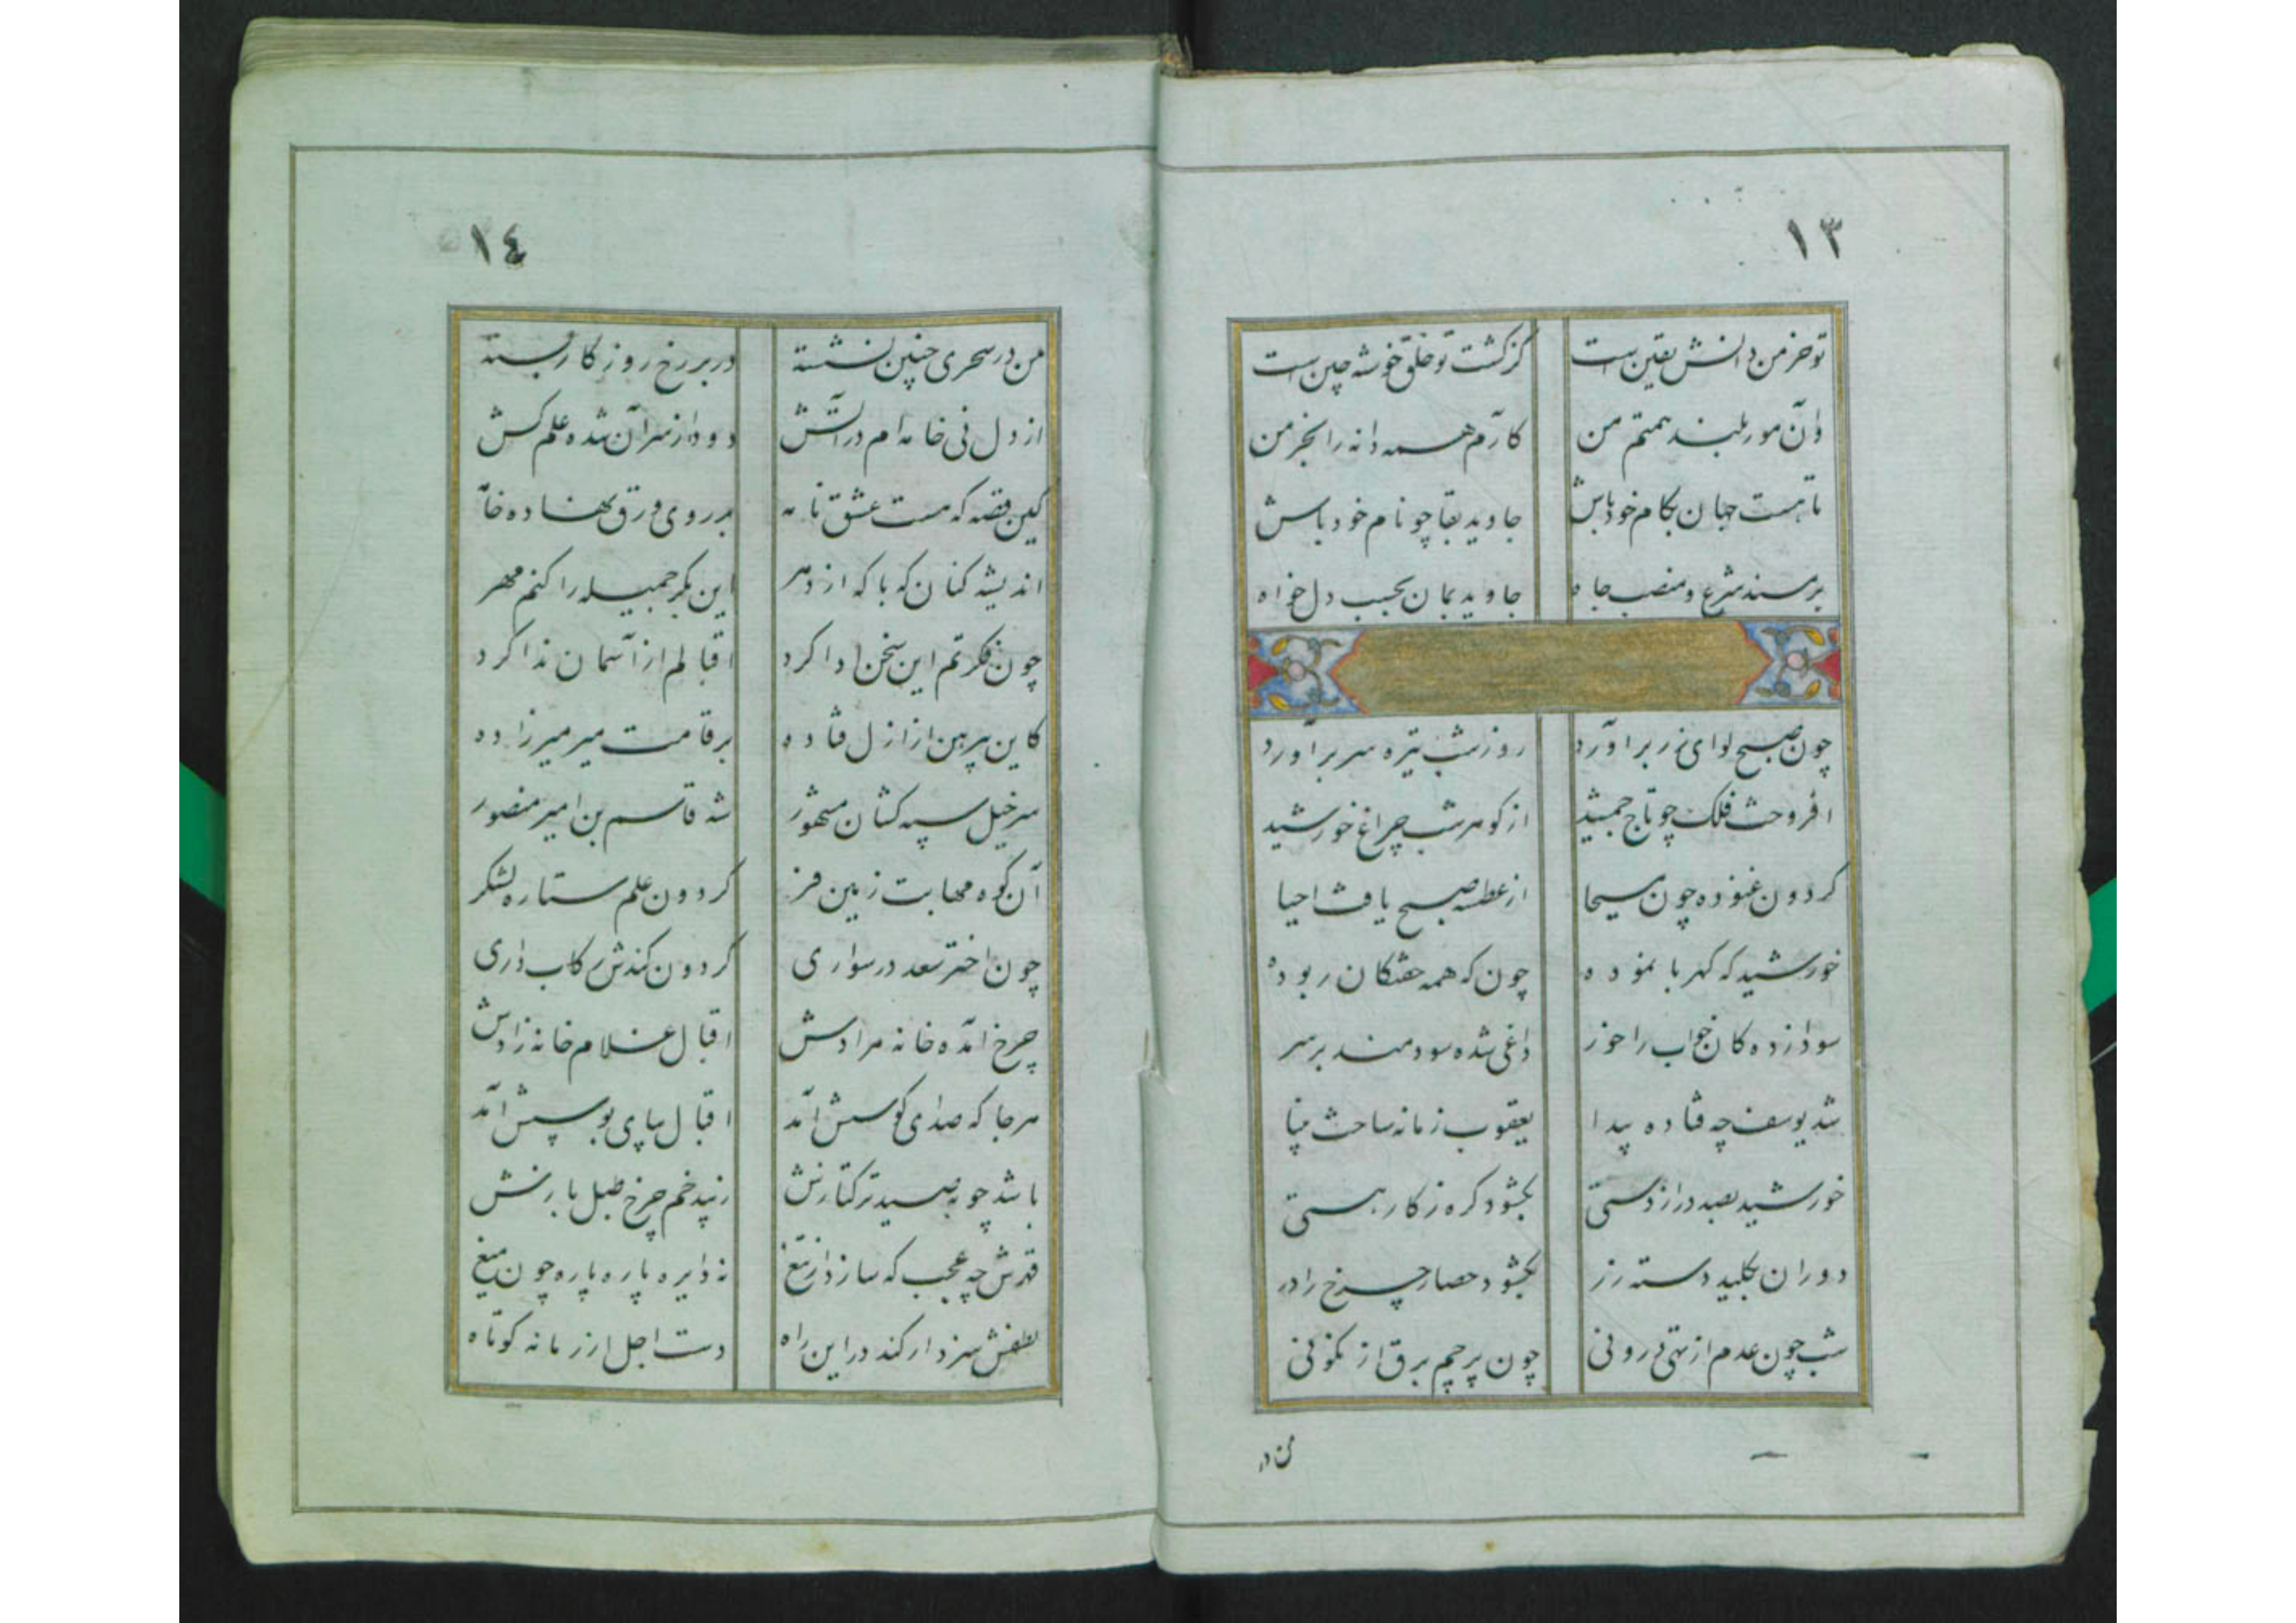 ١٣
تو خرمن دانش یقین است کز کشت تو خلق خوشه چین است
وآن مور بلند همتم من کارم همه دانه را بخرمن
تا هست جهان بکام خود باش جاوید بقا چو نام خود باش
بر مسند شرع و منصب جاه جاوید بمان بحسب دل خواه
چون صبح لوای زر برآورد روز شب تیره سر برآورد
افروخت فلک چو تاج جمشید از گوهر شب چراغ خورشید
گردون غنوده چون مسیحا از عطسه صبح یافت احیا
خورشید که کهربا نموده چون که همه خفتگان ربوده
سودازده کان خواب را خور داغی شده سودمند بر سر
شد یوسف چه فتاده پیدا یعقوب زمانه ساخت بینا
خورشید بصد دراز دستی بگشود گره ز کار هستی
دوران بکلید دسته زر بگشود حصار چرخ را در
شب چون عدم از تهی درونی چون پرچم برق از نگونی
من در
١٤
من در سحری چنین نشسته در بر رخ روزگار بسته
از دل نی خامه ام در آتش دود از سر آن شده علم کش
کین قصه که هست عشق نامه بر روی ورق نهاده خامه
اندیشه کنان که با که از دهر این بکر جمیله را کنم مهر
چون فکرتم این سخن ادا کرد اقبالم از آسمان ندا کرد
کاین پیرهن از ازل فتاده بر قامت میر میرزاده
سر خیل سپه کشان مشهور شه قاسم بن امیر منصور
آن کوه مهابت زمین فر گردون علم ستاره لشکر
چون اختر سعد در سواری گردون کندش رکاب داری
چرخ آمده خانه مرادش اقبال غلام خانه زادش
هر جا که صدای کوسش آمد اقبال بپای بوسش آمد
باشد چو به صید ترکتازش زنپد خم چرخ طبل بازش
قهرش چه عجب که سازد از تیغ نه دایره پاره پاره چون میغ
لطفش سزد ار کند در این راه دست اجل از زمانه کوتاه